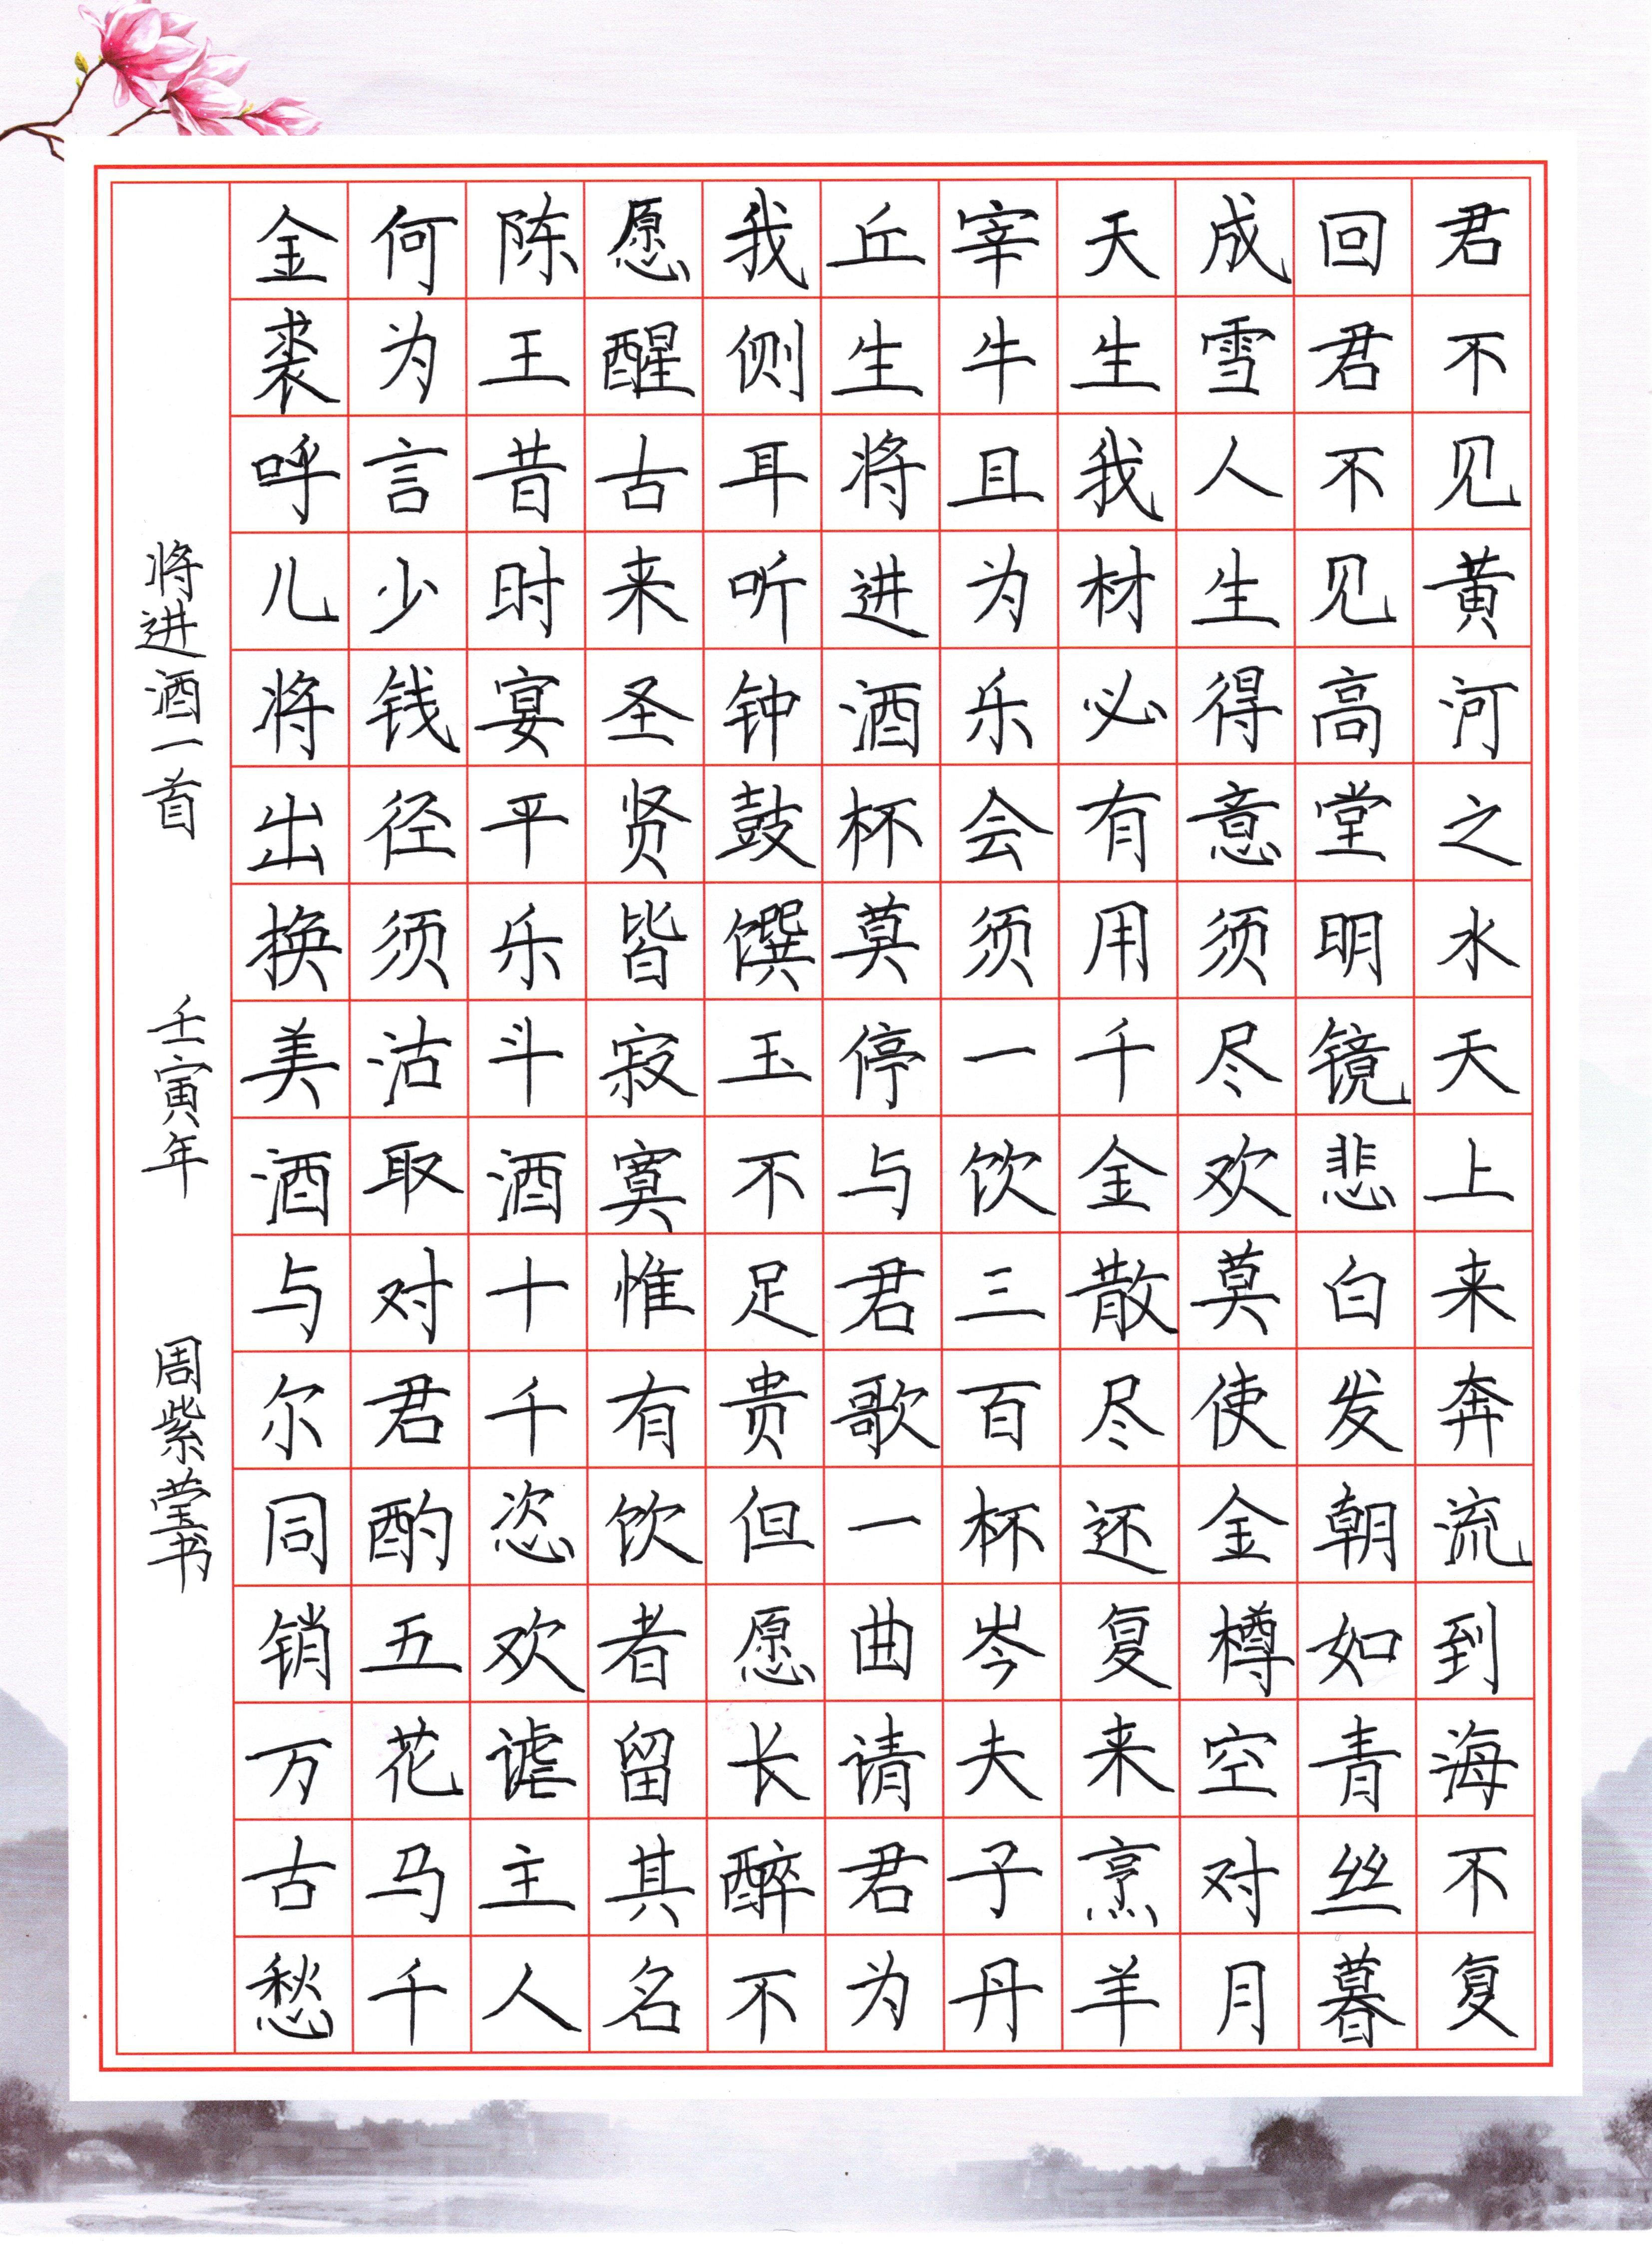 君不见黄河之水天上来奔流到海不复
回君不见高堂明镜悲白发朝如青丝暮
成雪人生得意须尽欢莫使金樽空对月
天生我材必有用千金散尽还复来烹羊
宰牛且为乐会须一饮三百杯岑夫子丹
丘生将进酒杯莫停与君歌一曲请君为
我侧耳听钟鼓馔玉不足贵但愿长醉不
愿醒古来圣贤皆寂寞惟有饮者留其名
陈王昔时宴平乐斗酒十千恣欢谑主人
何为言少钱径须沽取对君酌五花马千
金裘呼儿将出换美酒与尔同销万古愁
将进酒一首 壬寅年 周紫莹书